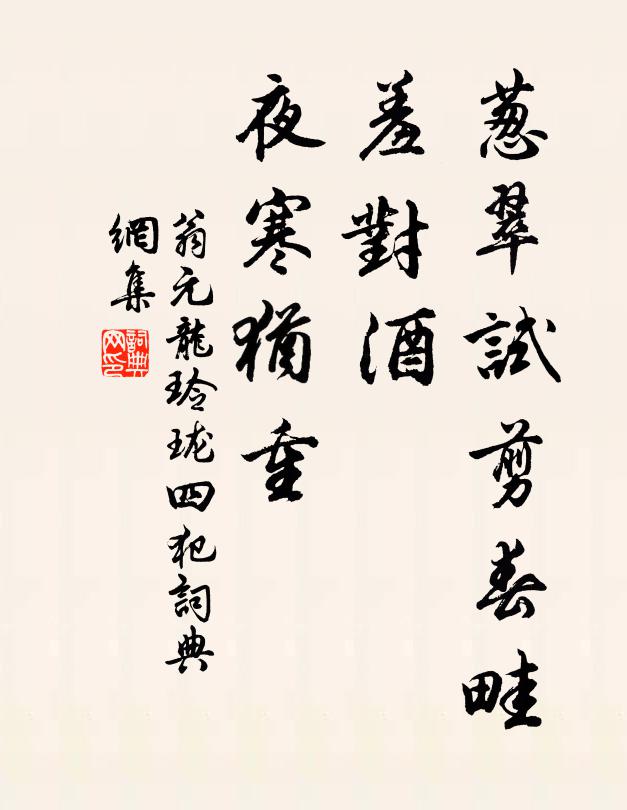 葱翠試剪春畦
羞對酒
夜寒猶重
翁元龍玲瓏四犯詞典
網集
詞典网印